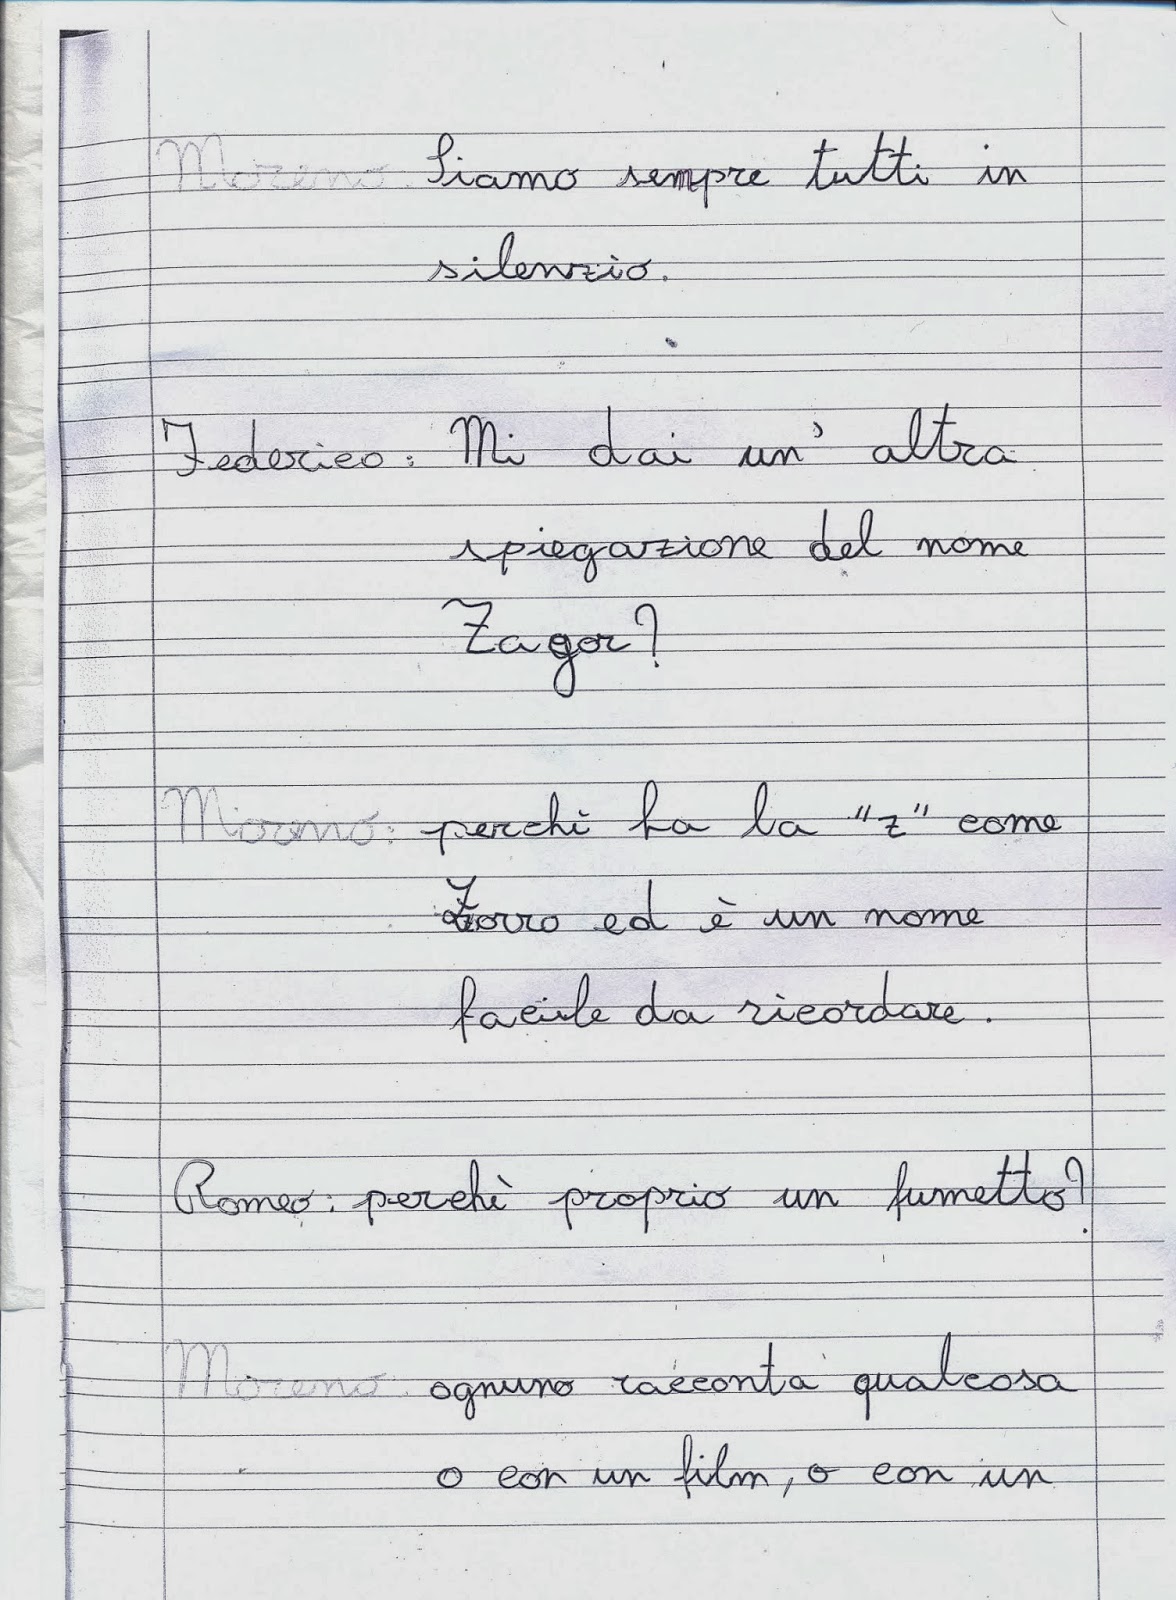 Moreno: Siamo sempre tutti in
silenzio.
Federico: Mi dai un' altra
spiegazione del nome
Zagor?
Moreno: perchè ha la "z" come
Zorro ed è un nome
facile da ricordare.
Romeo: perchè proprio un fumetto?
Moreno: ognuno racconta qualcosa
o con un film, o con un